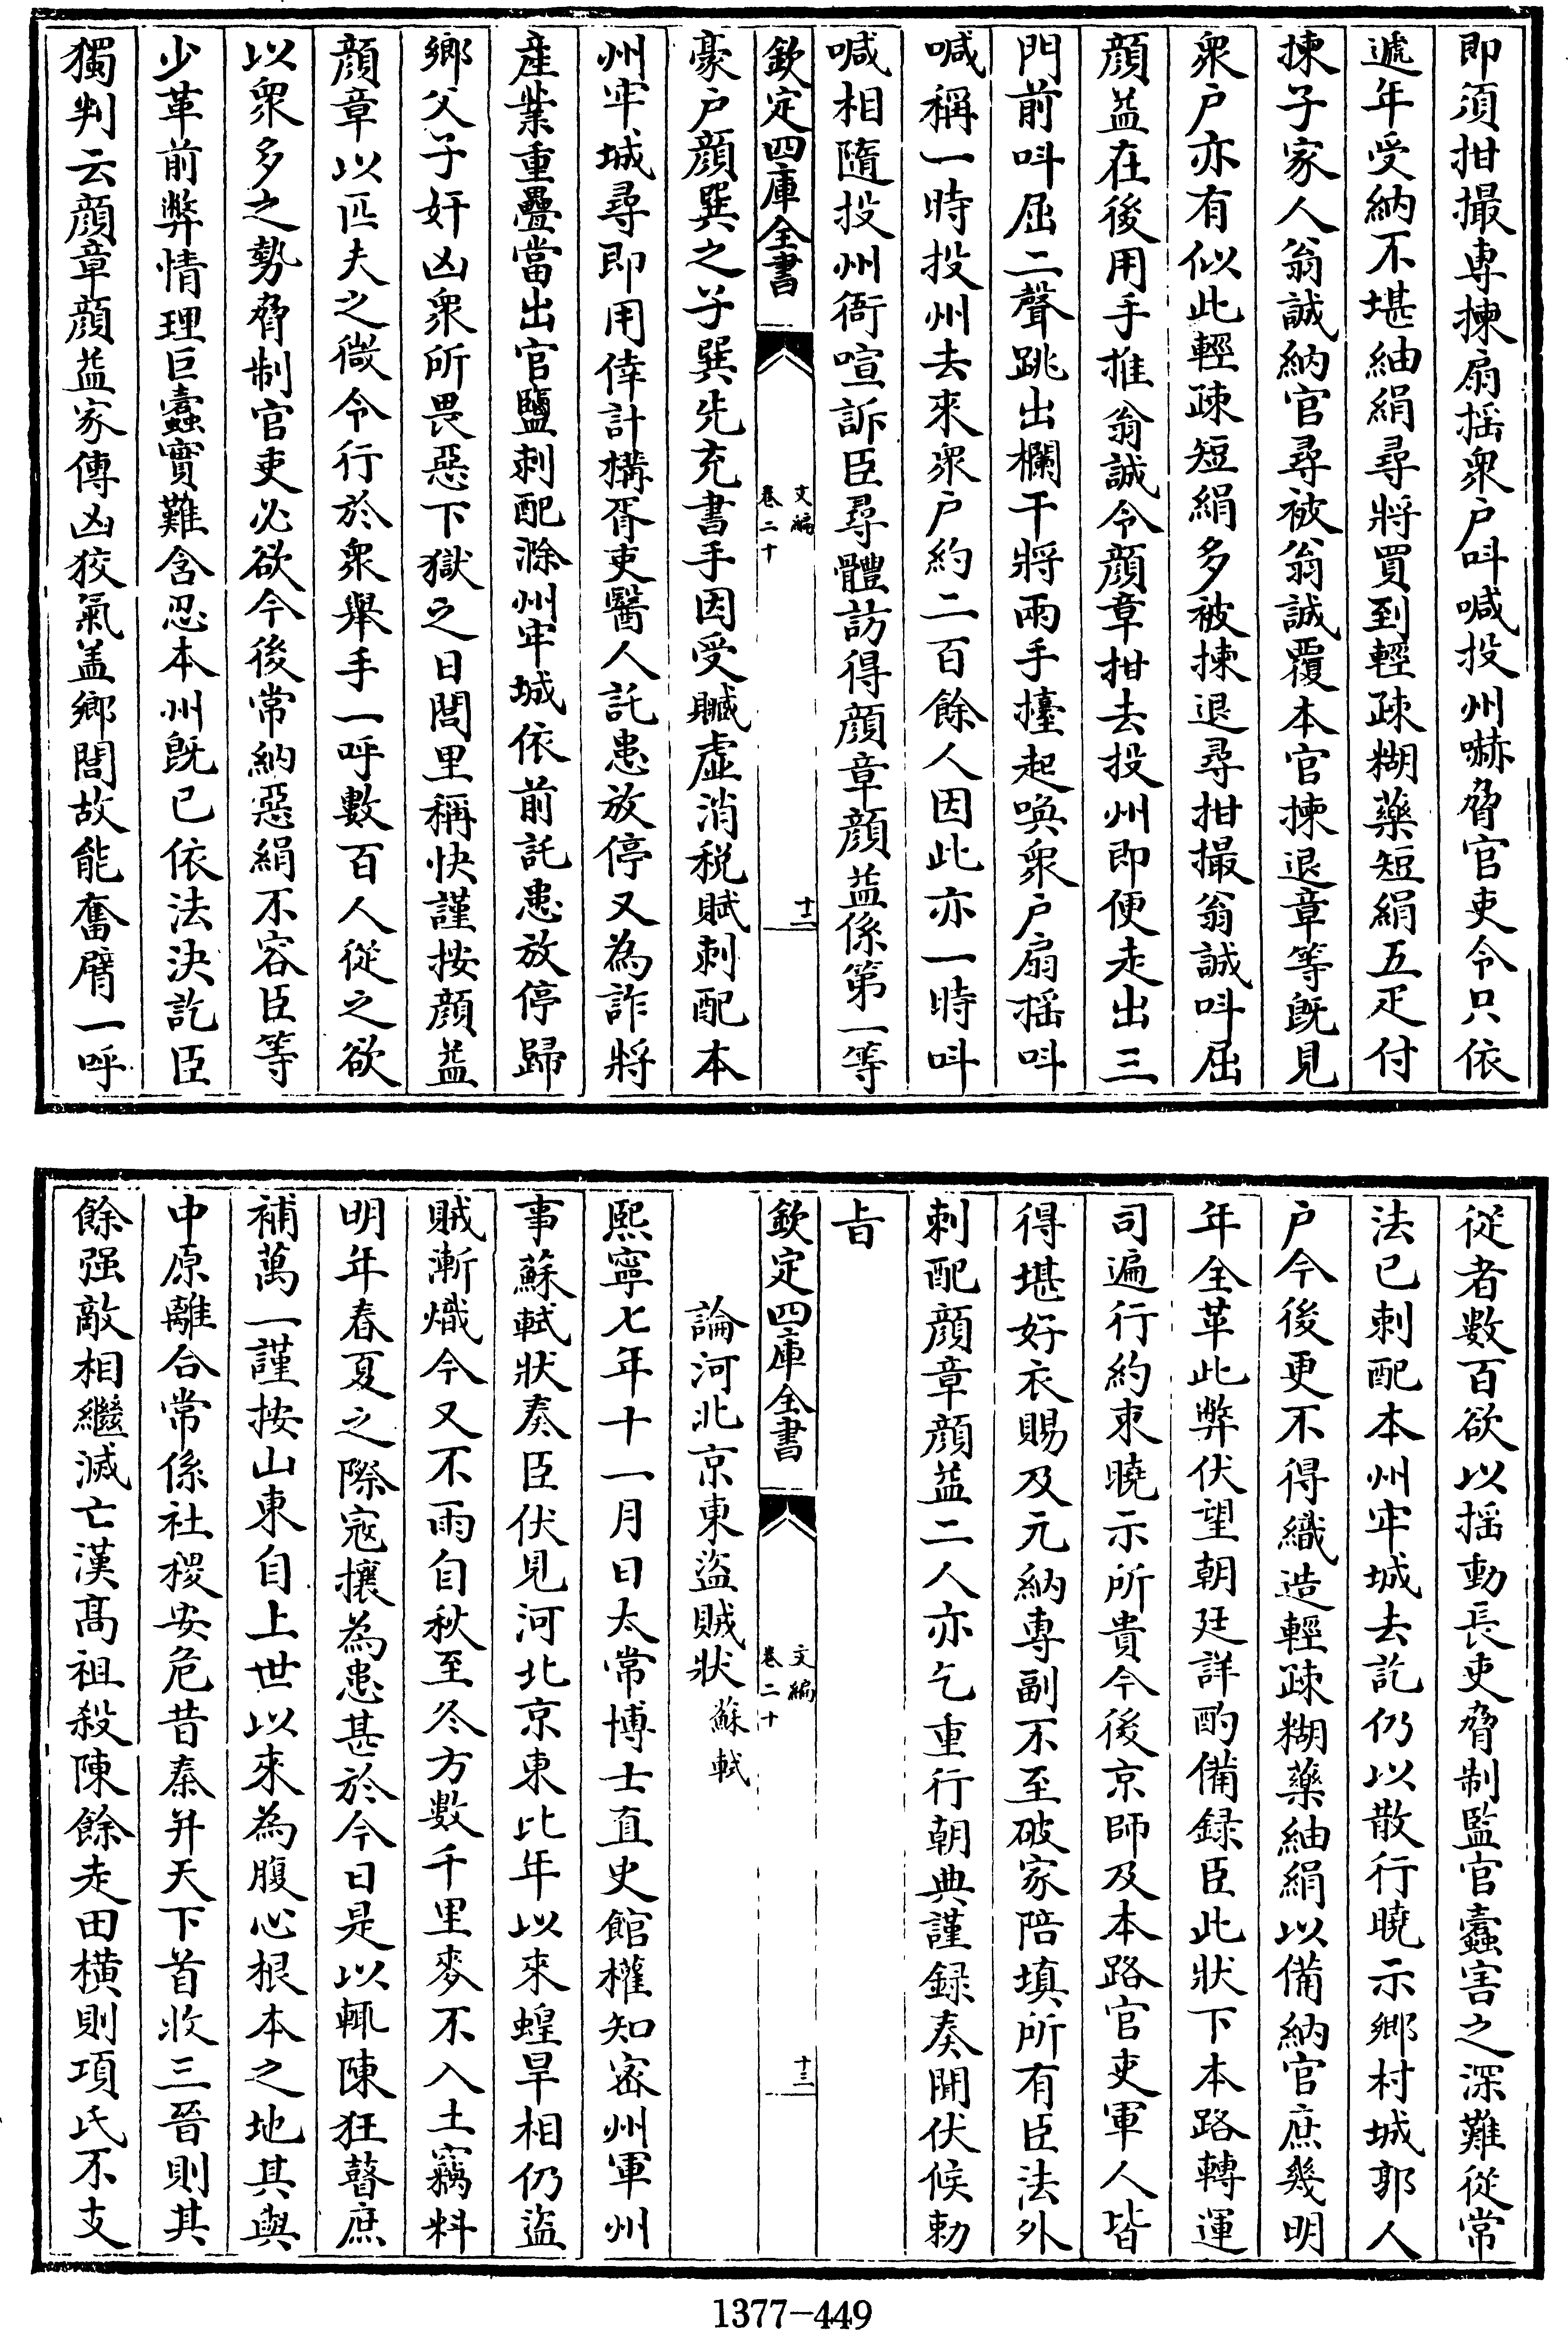 即須拑撮專揀扇揺衆户呌喊投州嚇脅官吏令只依
遞年受納不堪紬絹尋將買到輕疎糊藥短絹五疋付
揀子家人翁誠納官尋被翁誠覆本官揀退章等旣見
衆户亦有似此輕疎短絹多被揀退尋拑撮翁誠呌屈
顔益在後用手推翁誠令顔章拑去投州即便走出三
門前呌屈二聲跳出欄干將兩手擡起喚衆户扇揺呌
喊稱一時投州去來衆户約二百餘人因此亦一時呌
喊相隨投州衙喧訴臣尋體訪得顔章顔益係第一等
欽定四庫全書
文編
卷二十
十二
豪户顔巽之子巽先充書手因受贓虚消税賦刺配本
州牢城尋即用倖計構胥吏醫人託患放停又為詐將
産業重疊當出官鹽刺配滁州牢城依前託患放停歸
鄉父子奸凶衆所畏惡下獄之日閭里稱快謹按顔益
顔章以匹夫之微令行於衆舉手一呼數百人從之欲
以衆多之勢脅制官吏必欲今後常納惡絹不容臣等
少革前弊情理巨蠹實難含忍本州旣已依法決訖臣
獨判云顔章顔益家傳凶狡氣盖鄉閭故能奮臂一呼
從者數百欲以揺動長吏脅制監官蠹害之深難從常
法已刺配本州牢城去訖仍以散行曉示鄉村城郭人
户今後更不得織造輕疎糊藥紬絹以備納官庶幾明
年全革此弊伏望朝廷詳酌備録臣此狀下本路轉運
司遍行約束曉示所貴今後京師及本路官吏軍人皆
得堪好衣賜及元納專副不至破家陪填所有臣法外
刺配顔章顔益二人亦乞重行朝典謹録奏聞伏候勅
旨
欽定四庫全書
文編
卷二十
十三
論河北京東盜賊狀 蘇軾
熙寧七年十一月日太常博士直史館權知密州軍州
事蘇軾狀奏臣伏見河北京東比年以來蝗旱相仍盜
賊漸熾今又不雨自秋至冬方數千里麥不入土竊料
明年春夏之際寇攘為患甚於今日是以輒陳狂瞽庶
補萬一謹按山東自上世以來為腹心根本之地其與
中原離合常係社稷安危昔秦并天下首收三晉則其
餘强敵相繼滅亡漢髙祖殺陳餘走田橫則項氏不支
1377-449